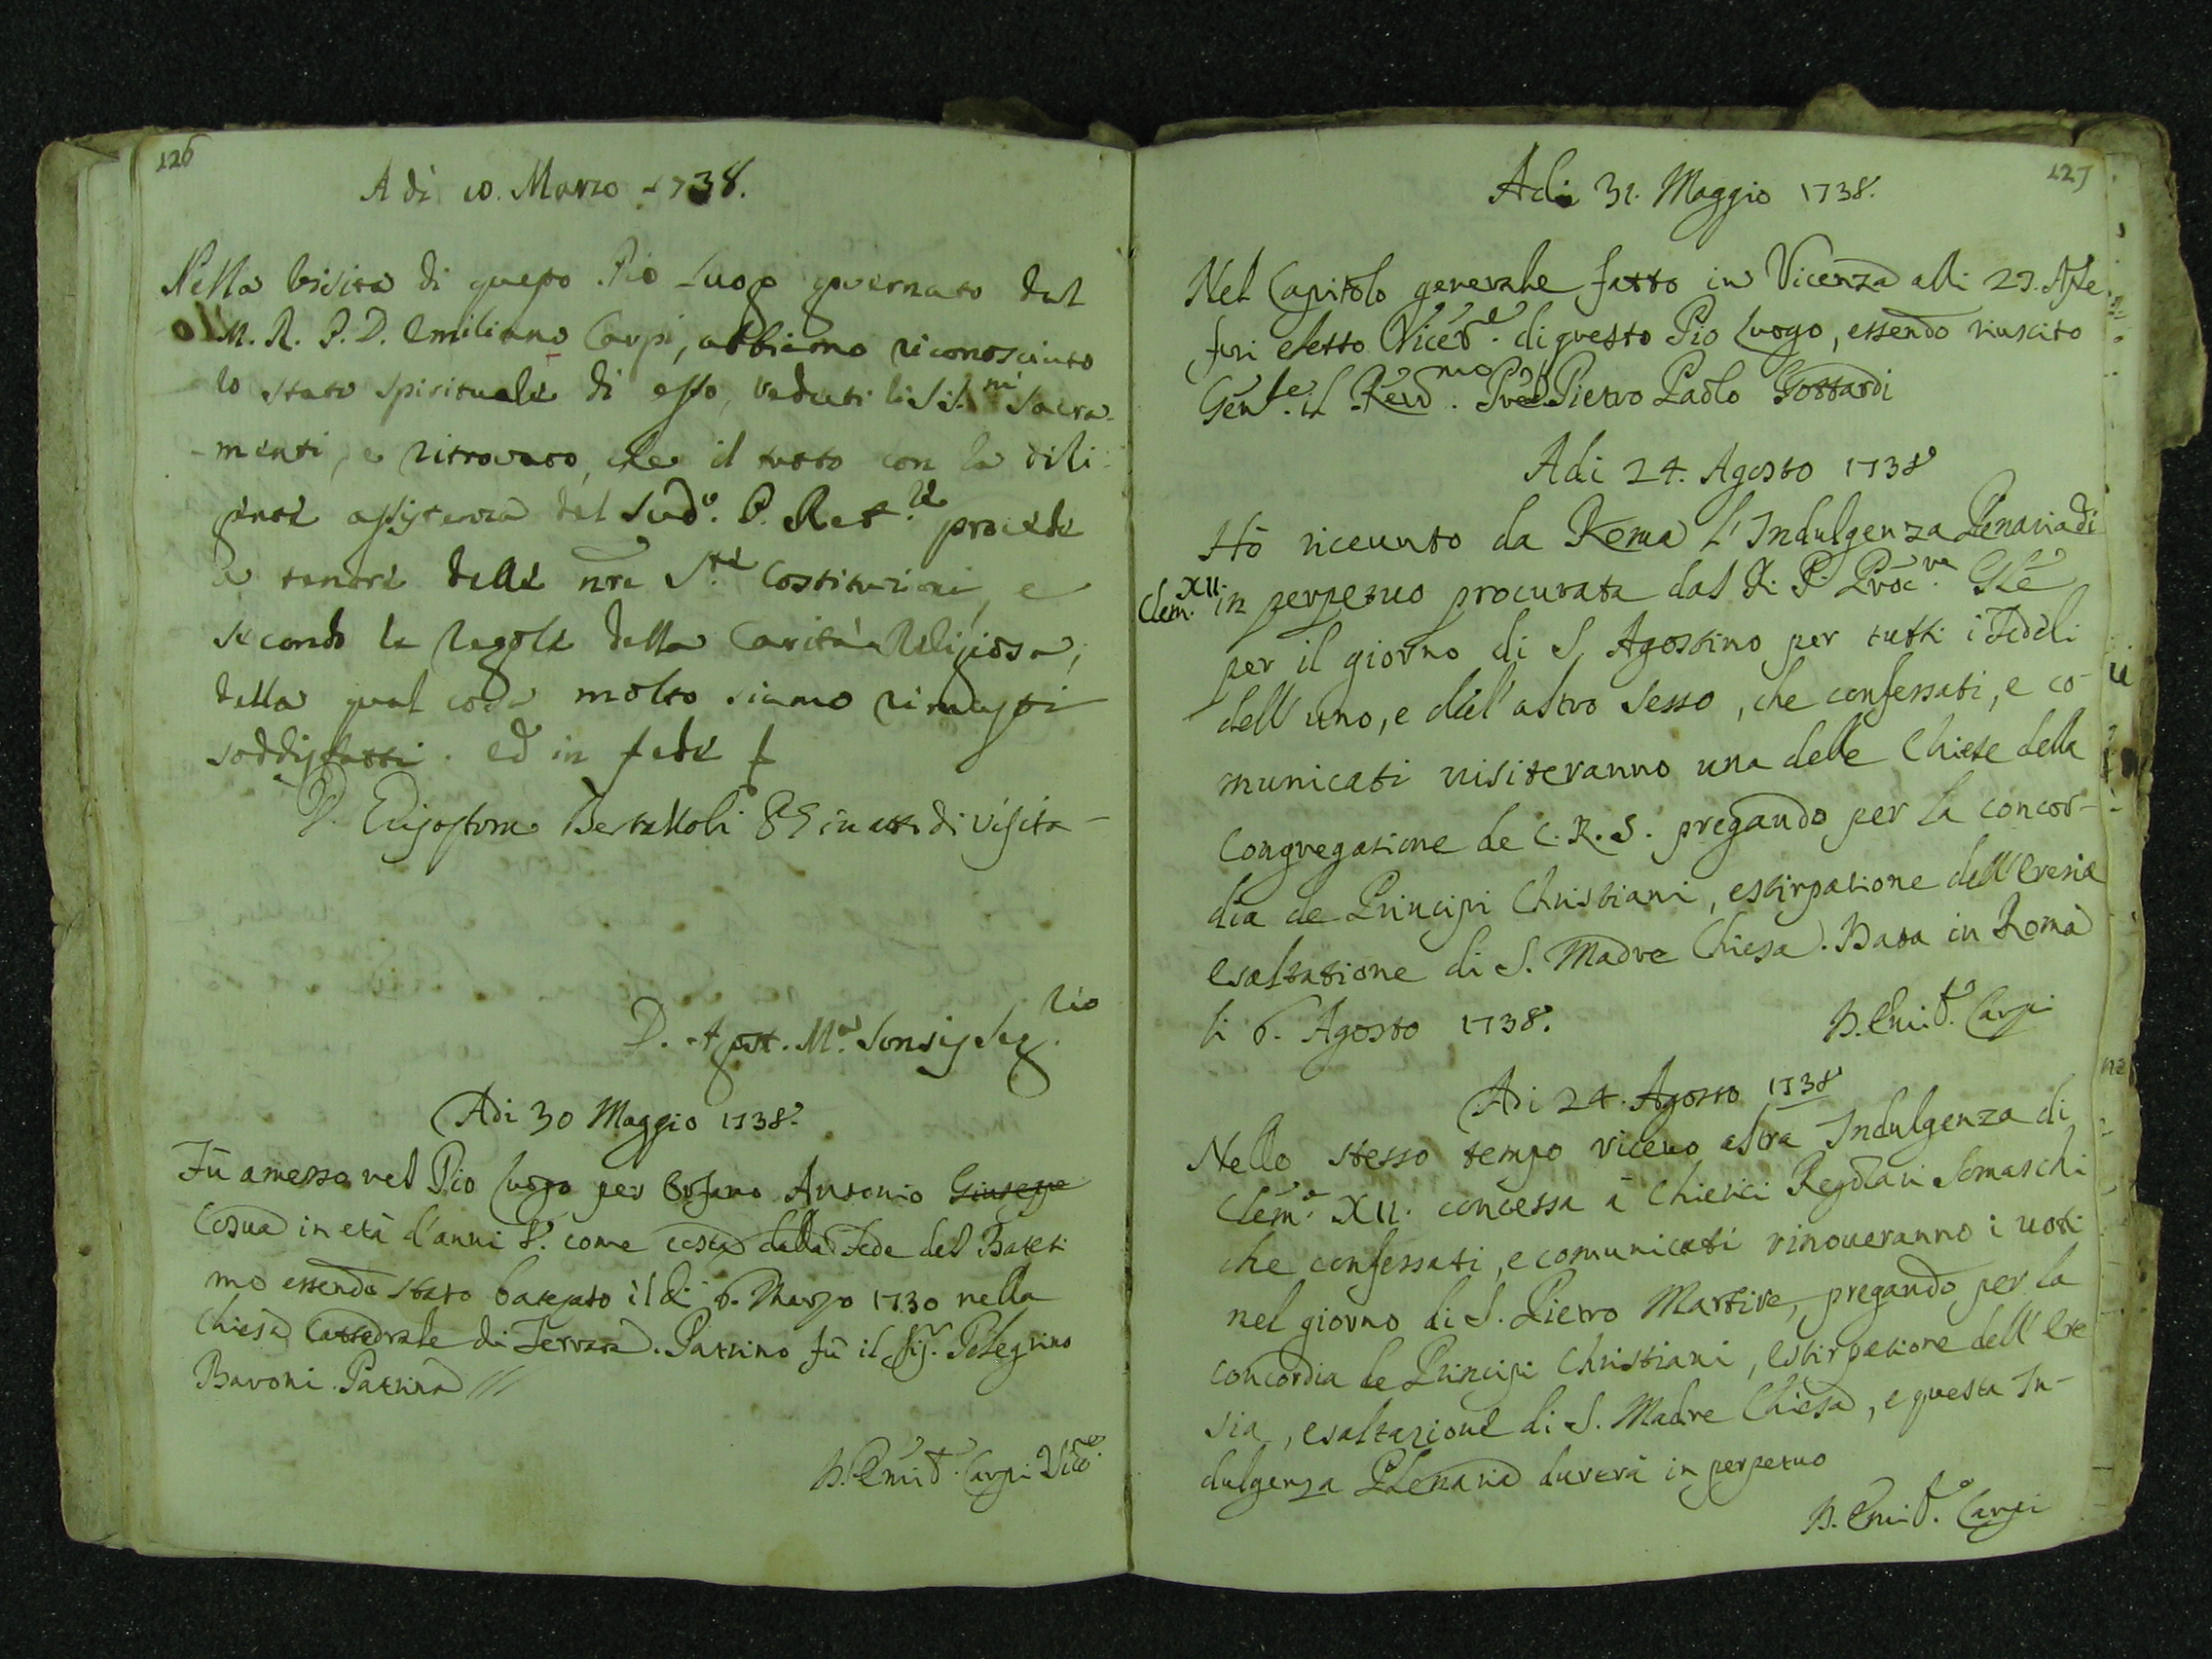 126
A dì 10. Marzo 1738.
Nella Visita di questo Pio Luogo governato dal
M. R. P. D. Emiliano Carpi, abbiamo riconosciuto
lo stato spirituale di esso, veduti li S.S.mi Sacra-
-menti, e ritrovato, che il tutto con la dili-
gente assistenza del Sud.o P. Ret.re procede
a tenore delle nre S.te Costituzioni, e
secondo le regole della Carità Religiosa,
della qual cosa molto siamo rimasti
soddisfatti. Ed in fede
D. Bertazzoli in atto di Visita
D. Agost. M.a Sonsis Seg.rio
Adi 30 Maggio 1738.
Fù amesso nel Pio Luogo per Orfano Antonio Giuseppe
Cosua in età d'anni 8. come costa dalla Fede del Batesi
mo essendo stato batezato il di 6. Marzo 1730 nella
Chiesa Cattedrale di Ferrara. Patrino fù il Sig.r Pelegrino
Baroni. Patrina ///
D. Emil.o Carpi Vice.e
127
Adi 31. Maggio 1738.
Nel Capitolo generale fatto in Vicenza alli 23. Aple
fui eletto Vicer.e di questo Pio Luogo, essendo riuscito
Gen.le il Reud.mo Pre D. Pietro Paolo Gottardi
Adi 24. Agosto 1738
Hò riceuuto da Roma l'Indulgenza Plenaria di
Clem. XII. in perpetuo procurata dal R. P. Proc.re Gle
per il giorno di S. Agostino per tutti i Fedeli
dell'uno, e dell'altro sesso, che confessati, e co-
municati uisiteranno una delle Chiese della
Congregatione de C. R. S. pregando per la concor-
dia de Principi Christiani, estirpatione dell'Eresie
esaltatione di S. Madre Chiesa. Data in Roma
li 6. Agosto 1738.
D. Emil.o Carpi
Adi 24. Agosto 1738
Nello stesso tempo riceuo altra Indulgenza di
Clem.e XII. concessa à Chierici Regolari Somaschi
che confessati, e comunicati rinoueranno i uoti
nel giorno di S. Pietro Martire, pregando per la
concordia de Principi Christiani, estirpatione dell'Ere
sia, esaltazione di S. Madre Chiesa, e questa In-
dulgenza Plenaria durerà in perpetuo
D. Emil.o Carpi